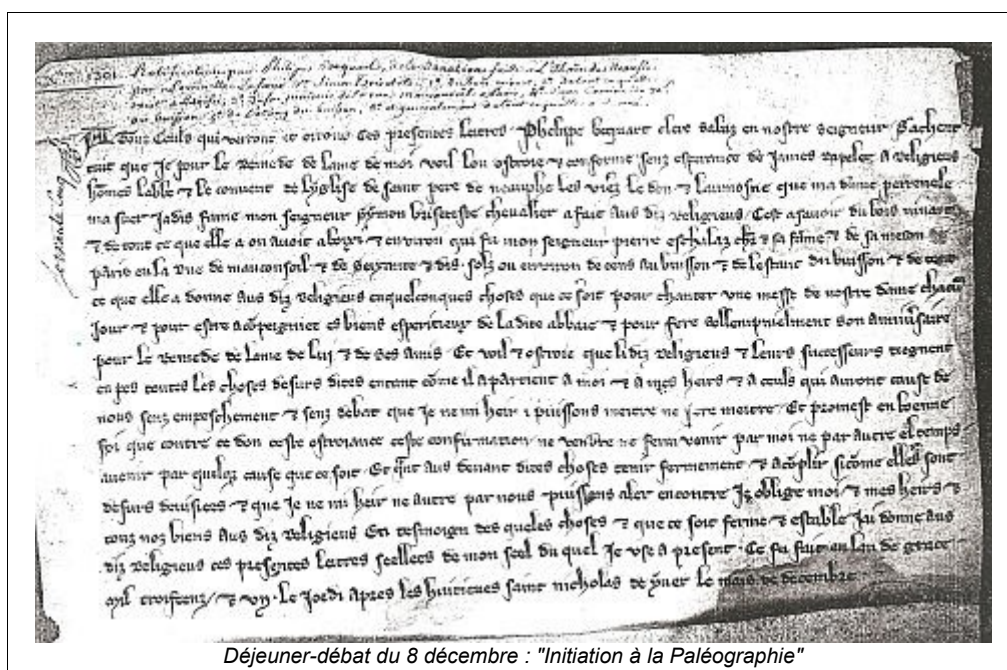 1301. Ratification par Philippe Becquart, de la Donation faite a L'
A Touz Ceuls qui verront et orront ces presentes lettres Phelipe bequart clerc saluz en nostre seigneur Sachent
tuit que je pour le remede de lame de moi voil lou ostroie & conferme senz esperance de james rapeler a religieus
homes labbe & le convent de lyglise de saint pere de neauphe les viez le don & laumosne que ma dame perrenele
ma suer jadis fame mon seigneur symon briseteste chevalier a fait aus diz religieus Cest a savoir du bois
& de tout ce que elle a ou avoit a & environ qui fu mon seigneur pierre eschalaz chr & sa fame & de sa meson de
paris en la rue de mauconseil & de seixante & dis solz ou environ de cens au buisson & de lestanc du buisson & de tout
ce que elle a donne aus diz religieus enquelconques choses que ce soit pour chanter une messe de nostre dame chacun
jour & pour estre acompeigniee es biens esperitieux de la dite abbaie & pour fere sollempnielment son anniversaire
pour le remede de lame de lui & de ses amis Et voil & ostroie que li diz religieus & leurs successeurs tiegnent
en pes toutes les choses desurs dites entant come il apartient a moi & a mes heirs & a ceuls qui auront cause de
nous senz empeschement & senz debat que je ne mi heir i puissons metre ne fere metre Et promest en boenne
foi que contre ce don ceste ostroiance ceste confirmation ne vendre ne ferai venir par moi ne par autre el temps
avenir par quelque cause que ce soit Et quant aus devant dites choses tenir fermement & acomplir sicome elles sont
desurs devisiees & que je ne mi heir ne autre par nous puissons aler encontre je oblige moi & mes heirs &
touz noz biens aus diz religieus En tesmoign des queles choses & que ce soit ferme & estable jai donne aus
diz religieus ces presentes lettres seellees de mon seel du quel je use a present Ce fu fait en lan de grace
mil trois cenz & un le joedi apres les huitieves saint nicholas de yver le mais de decembre
Déjeuner-débat du 8 décembre : "Initiation à la Paléographie"